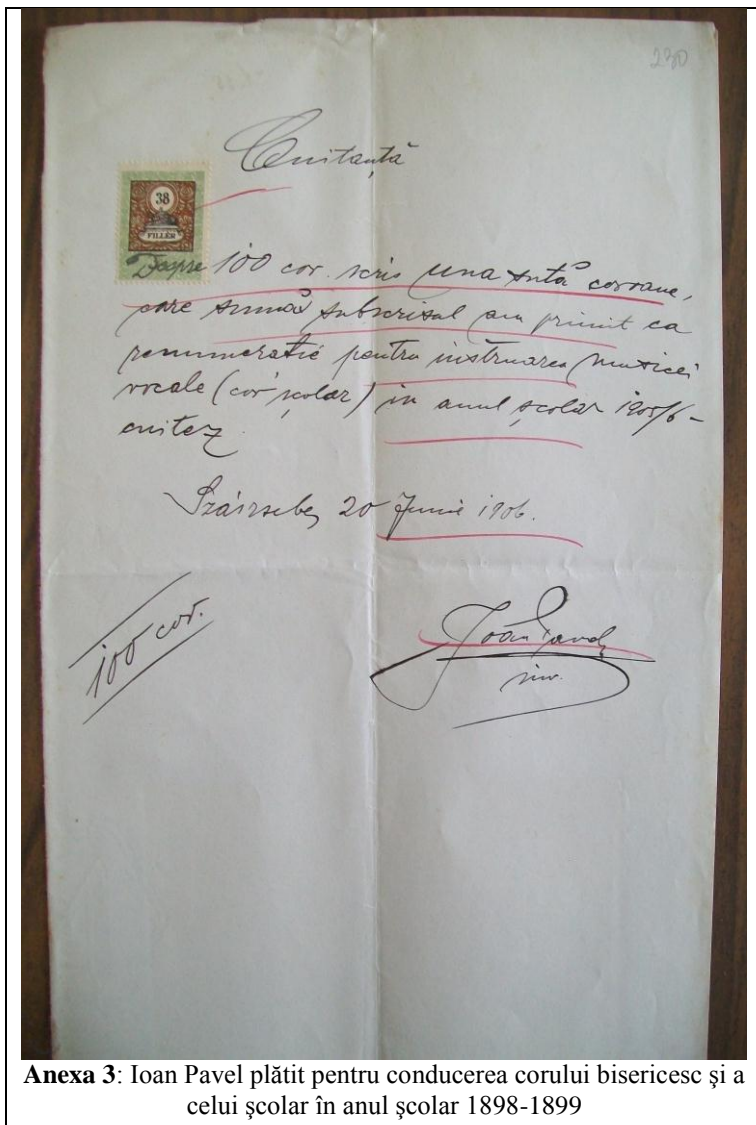 230
Cuitanţă
38
FILLÉR
Despre 100 cor. scris una sută coroane,
care sumă subscrisul am primit ca
remuneratie pentru instruarea musicei
vocale (cor şcolar) in anul şcolar 1905/6 -
cuitez
Szászsebeş 20 Junie 1906.
100 cor.
Ioan Pavel
inv.
Anexa 3: Ioan Pavel plătit pentru conducerea corului bisericesc şi a
celui şcolar în anul şcolar 1898-1899